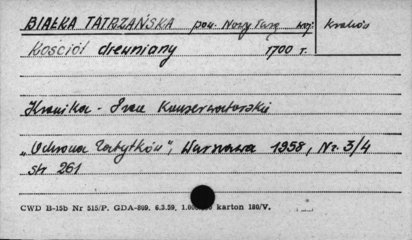 BIAŁKA TATRZAŃSKA pow. Nowy Targ woj. Kraków
Kościół drewniany 1700 r.
Kronika - Prace Konserwatorskie
„Ochrona Zabytków", Warszawa 1958, Nr. 3/4
str 261
CWD B-15b Nr 515/P. GDA-809. 6.3.59. karton 180/V.